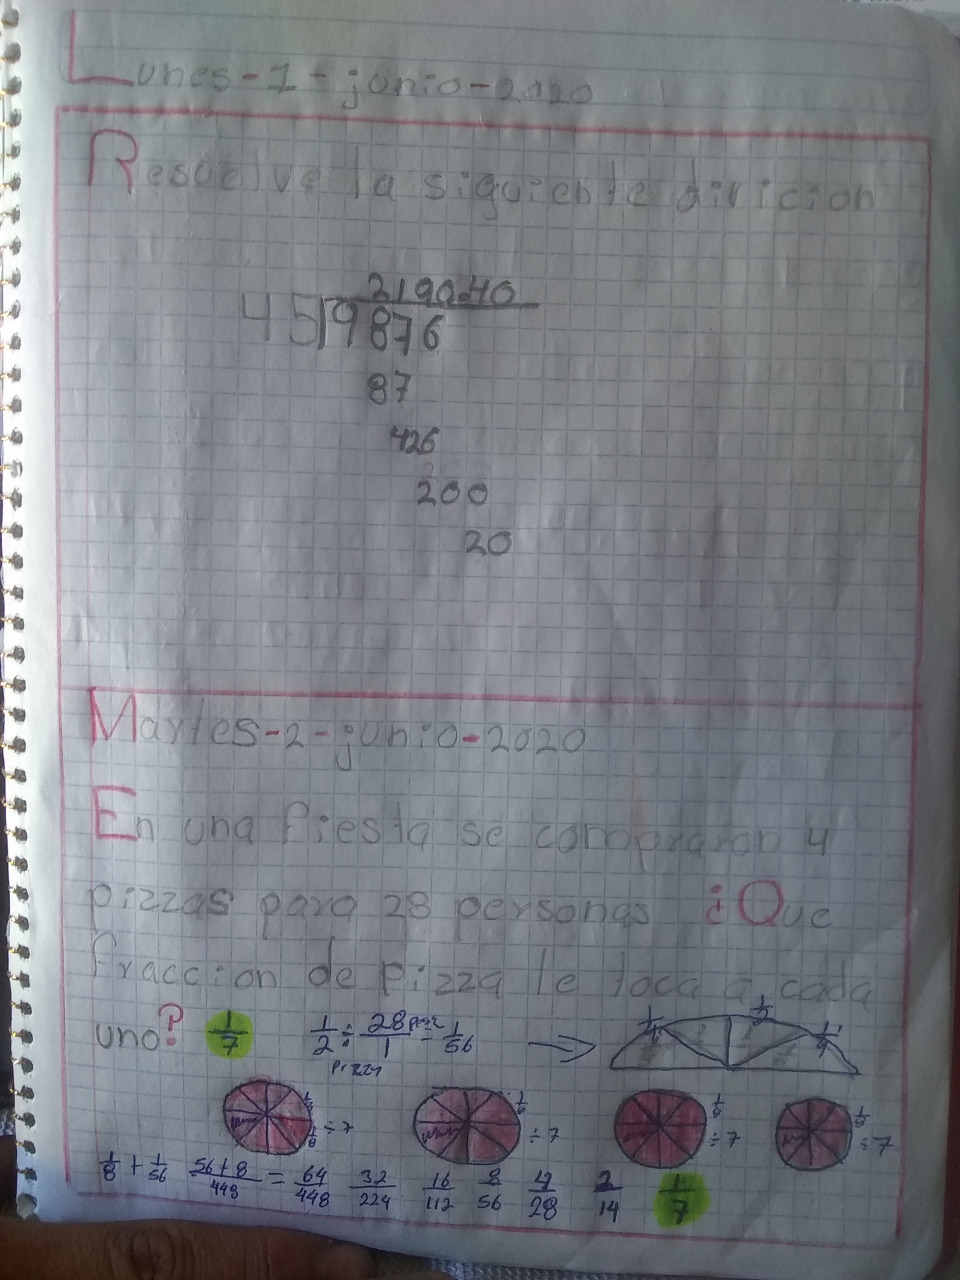 Lunes-1-junio-2020
Resuelve la siguiente divicion
219040
45 9876
87
426
200
20
Martes-2-junio-2020
En una fiesta se compraron 4
pizzas para 28 personas ¿Que
fraccion de pizza le toca a cada
uno? 1/7 1/2 ÷ 28/1 = 1/56
1/8 ÷7 1/8 ÷7 1/8 ÷7 1/8 ÷7
1/8 + 1/56 56+8/448 = 64/448 32/224 16/112 8/56 4/28 2/14 1/7